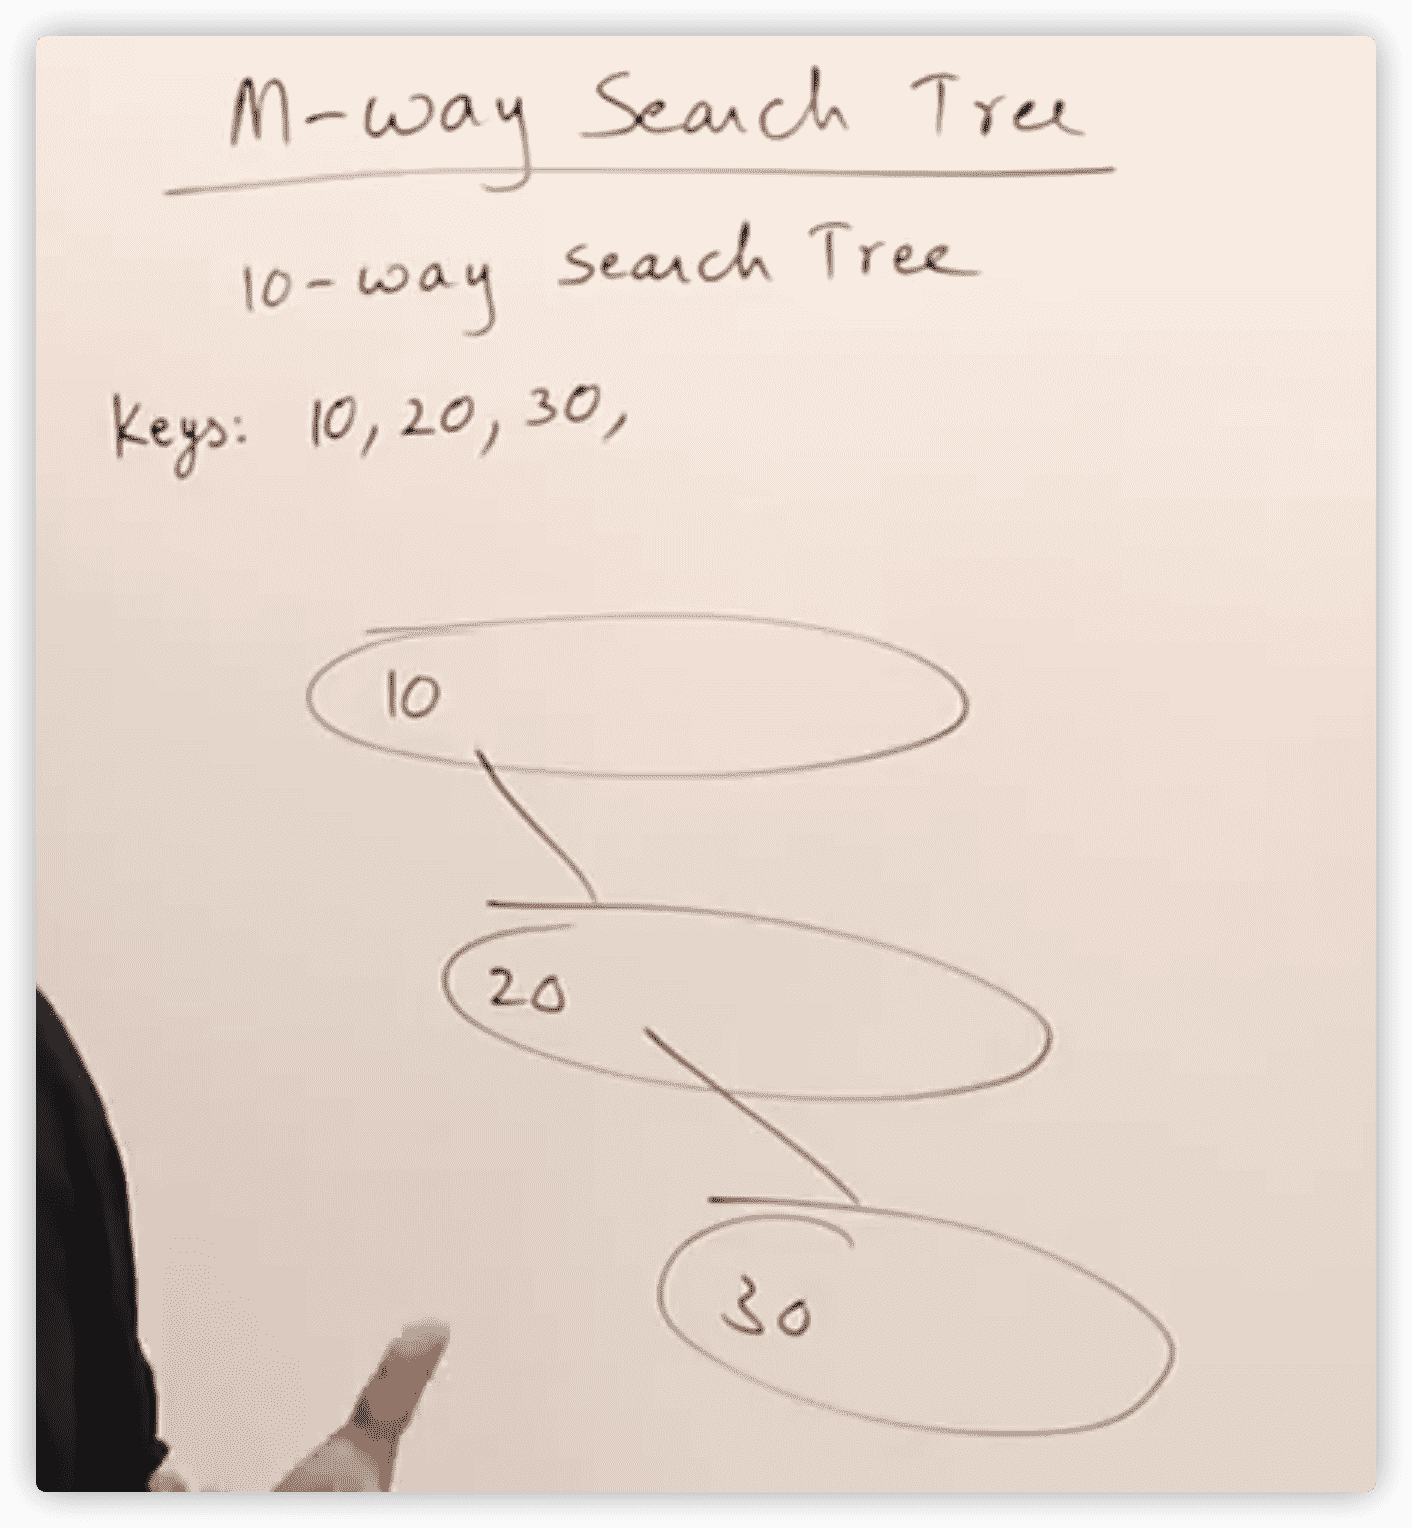 M-way Search Tree
10-way Search Tree
Keys: 10, 20, 30,
10
20
30